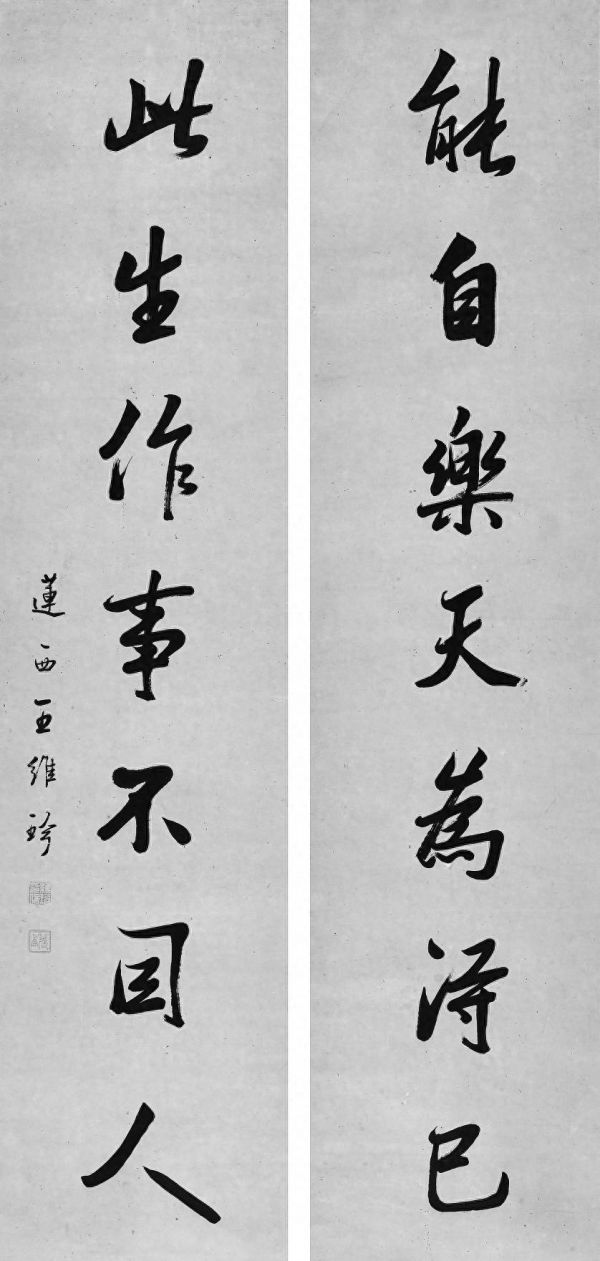 能自樂天為得已
此生作事不因人
蓮西王維珍